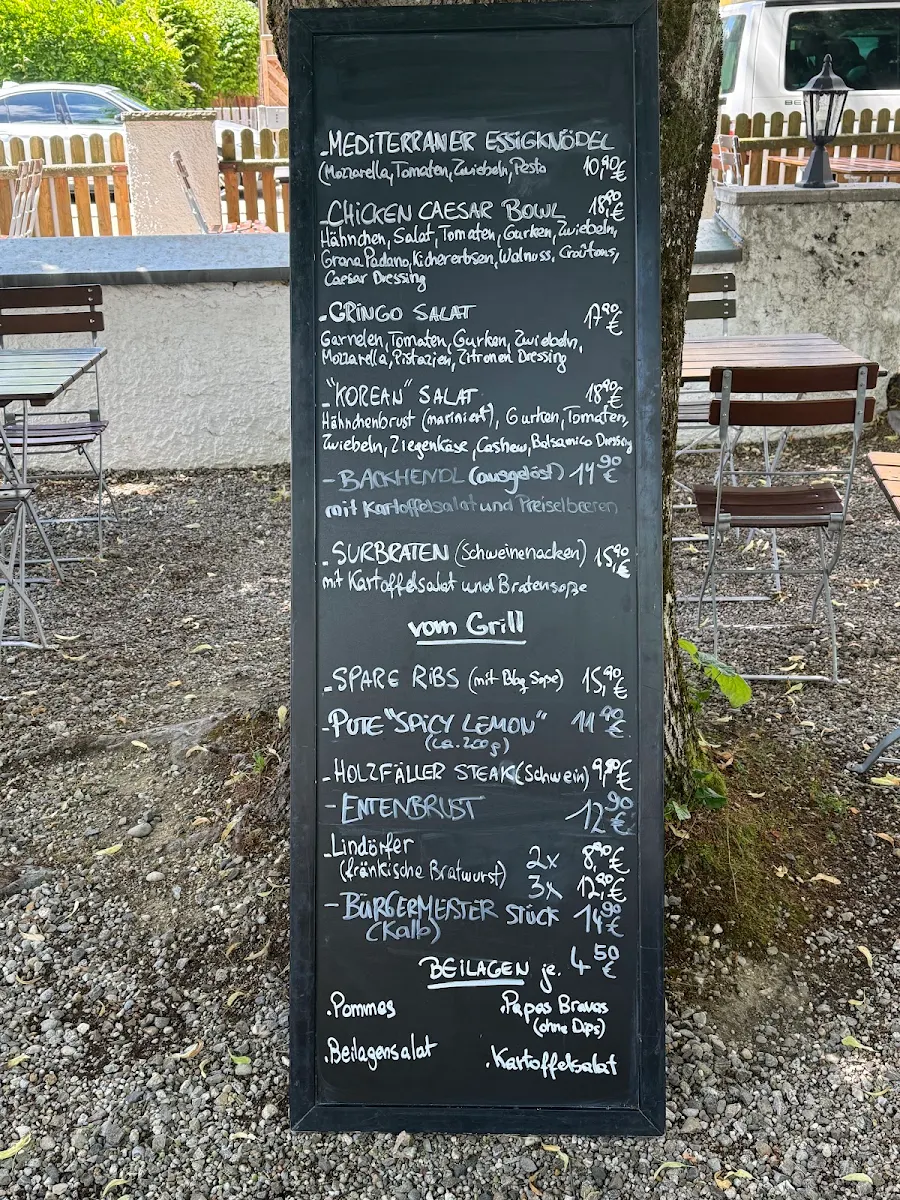 -MEDITERRANER ESSIGKNÖDEL
(Mozzarella, Tomaten, Zwiebeln, Pesto 10,90€
-CHICKEN CAESAR BOWL 18,90€
Hähnchen, Salat, Tomaten, Gurken, Zwiebeln,
Grana Padano, Kichererbsen, Walnuss, Croûtons,
Caesar Dressing
-GRINGO SALAT 17,90€
Garnelen, Tomaten, Gurken, Zwiebeln,
Mozzarella, Pistazien, Zitronen Dressing
-"KOREAN" SALAT 18,90€
Hähnchenbrust (mariniert), Gurken, Tomaten,
Zwiebeln, Ziegenkäse, Cashew, Balsamico Dressing
- BACKHENDL (ausgelöst) 14,90€
mit Kartoffelsalat und Preiselbeeren
-SURBRATEN (Schweinenacken) 15,90€
mit Kartoffelsalat und Bratensoße
vom Grill
-SPARE RIBS (mit Bbq Soße) 15,90€
-PUTE "SPICY LEMON" 11,90€
(ca. 200g)
-HOLZFÄLLER STEAK (Schwein) 9,90€
- ENTENBRUST 12,90€
-Lindörfer 2x 8,90€
(fränkische Bratwurst) 3x 12,90€
- BÜRGERMEISTER STÜCK 14,90€
(Kalb)
BEILAGEN je. 4,50€
.Pommes .Papas Bravas
(ohne Dips)
.Beilagensalat .Kartoffelsalat